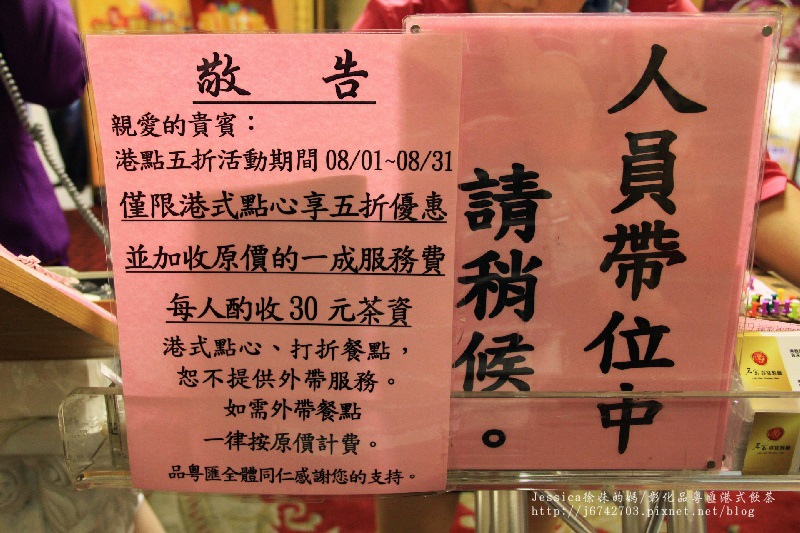 敬 告
親愛的貴賓：
港點五折活動期間 08/01~08/31
僅限港式點心享五折優惠
並加收原價的一成服務費
每人酌收 30 元茶資
港式點心、打折餐點，
恕不提供外帶服務。
如需外帶餐點
一律按原價計費。
品粵匯全體同仁感謝您的支持。
人員帶位中
請稍候。
Jessica徐洣的媽/彰化品粵匯港式飲茶
http://j6742703.pixnet.net/blog